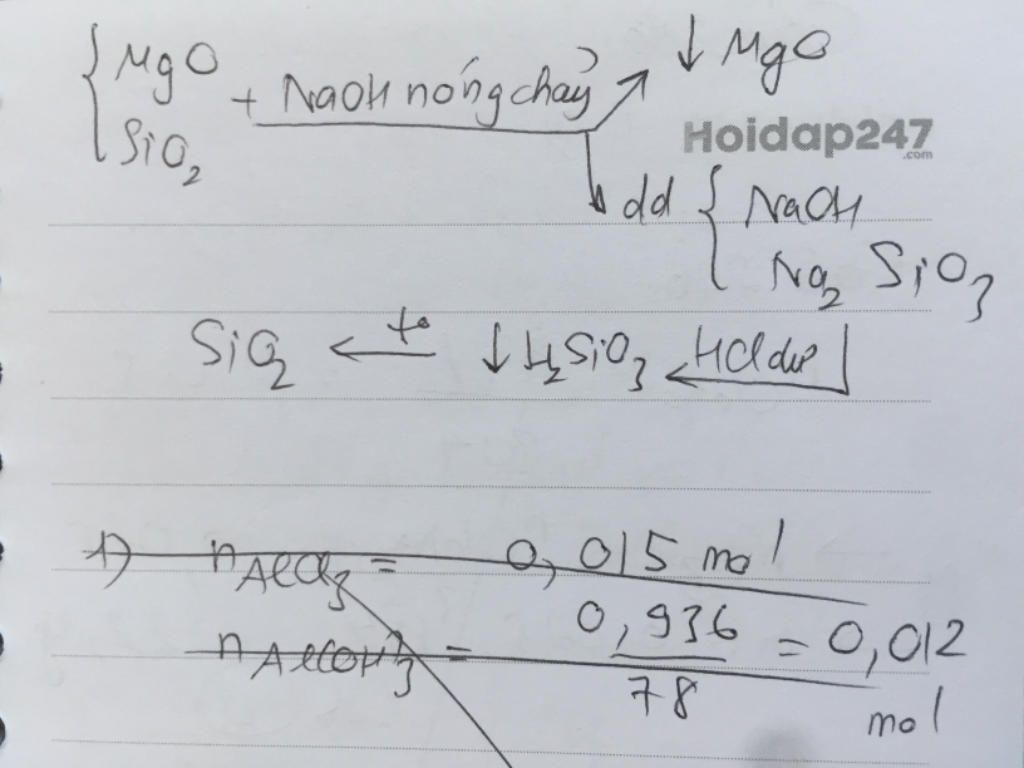 { MgO
SiO2
+ NaOH nóng chảy
↓ MgO
Hoidap247
.com
dd { NaOH
Na2SiO3
SiO2 ← t° ↓ H2SiO3 ← HCl dư
1) nAlCl3 = 0,015 mol
nAl(OH)3 = 0,936 / 78 = 0,012
mol